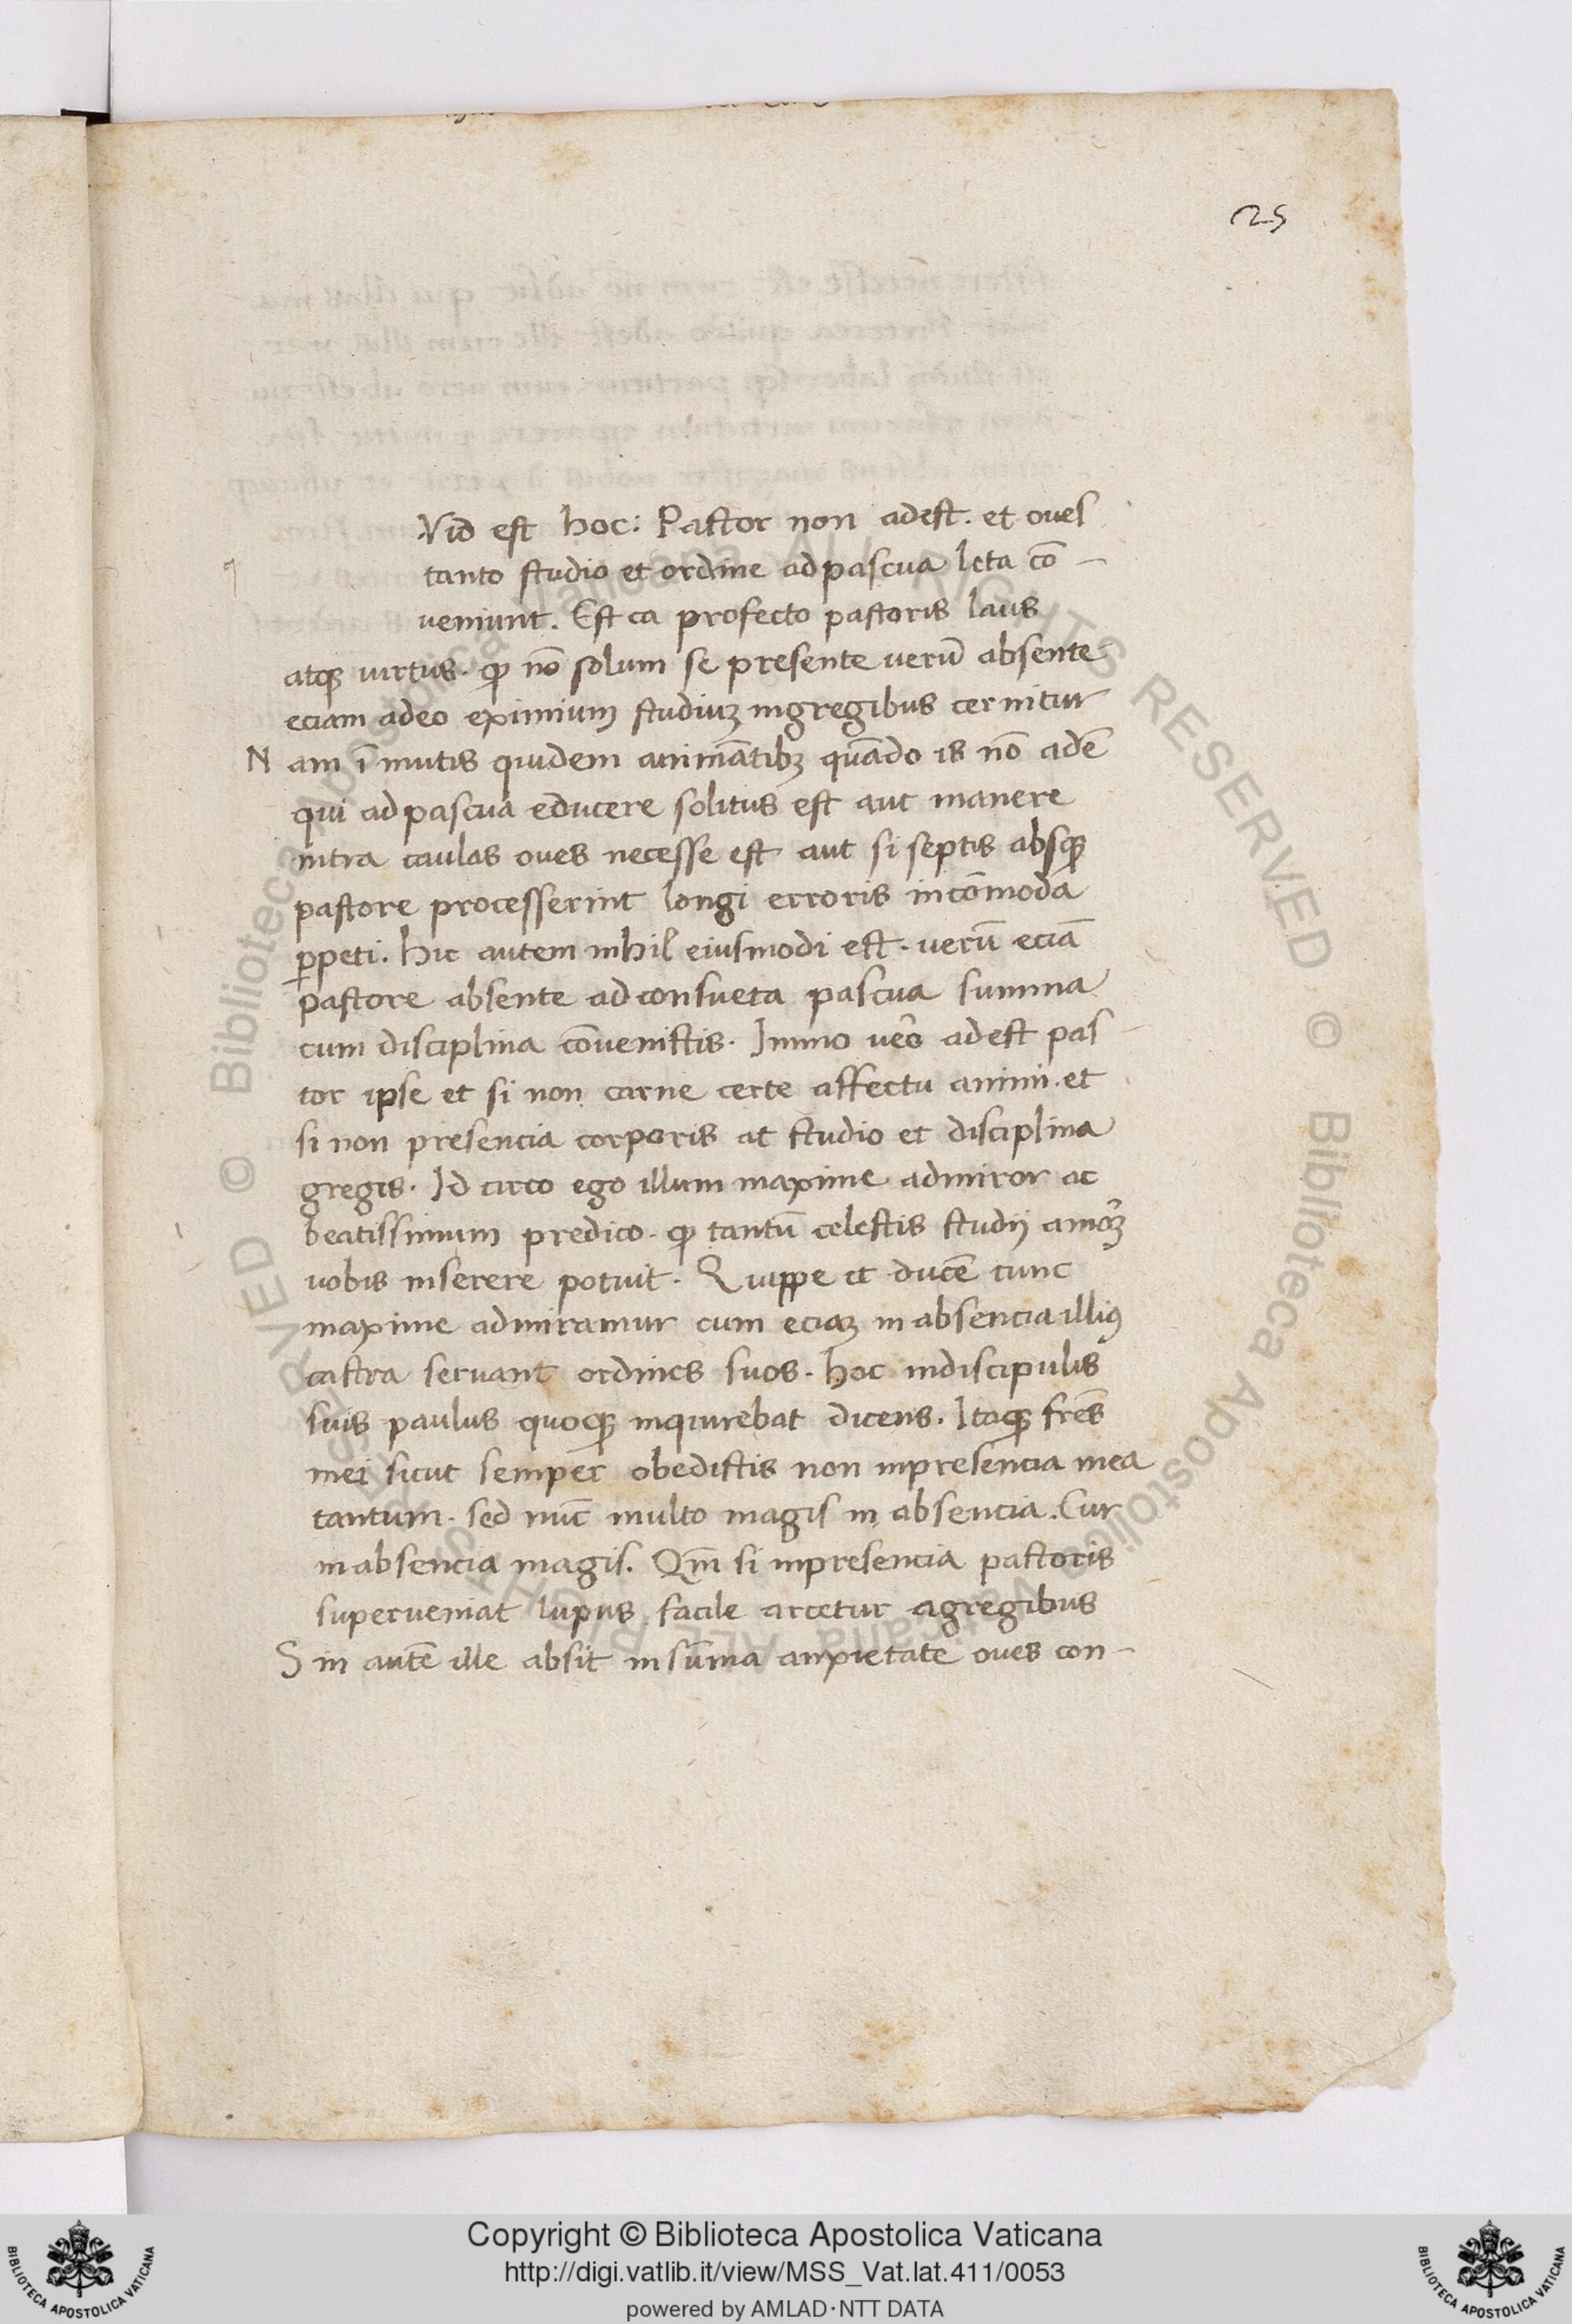 25
Vid est hoc: Pastor non adest. et oues
q
tanto studio et ordine ad pascua leta cō-
ueniunt. Est ea profecto pastoris laus
atqꝫ uirtus. ꝙ nō solum se presente uerū absente
eciam adeo eximium studiuꝫ in gregibus cernitur
Nam ī mutis quidem animātibꝫ quādo is nō adē
qui ad pascua educere solitus est aut manere
intra caulas oues necesse est aut si septis absqꝫ
pastore processerint longi erroris incōmoda
ꝑpeti. hic autem nihil eiusmodi est. uerū eciā
pastore absente ad consueta pascua summa
cum disciplina cōuenistis. Immo uero adest pas
tor ipse et si non carne certe affectu animi. et
si non presencia corporis at studio et disciplina
gregis. Id circo ego illum maxime admiror ac
beatissimum predico. ꝙ tantū celestis studij amoꝫ
uobis inserere potuit. Quippe et ducē tunc
maxime admiramur cum eciaꝫ in absencia illiꝰ
castra seruant ordines suos. hoc in discipulis
suis paulus quoqꝫ inquirebat dicens. Itaqꝫ frēs
mei sicut semper obedistis non in presencia mea
tantum. sed nūc multo magis in absencia. Cur
in absencia magis. Qm̄ si in presencia pastoris
superueniat lupus facile arcetur a gregibus
Sin autē ille absit in sūma anxietate oues con-
Copyright © Biblioteca Apostolica Vaticana
http://digi.vatlib.it/view/MSS_Vat.lat.411/0053
powered by AMLAD·NTT DATA
BIBLIOTECA APOSTOLICA VATICANA
BIBLIOTECA APOSTOLICA VATICANA